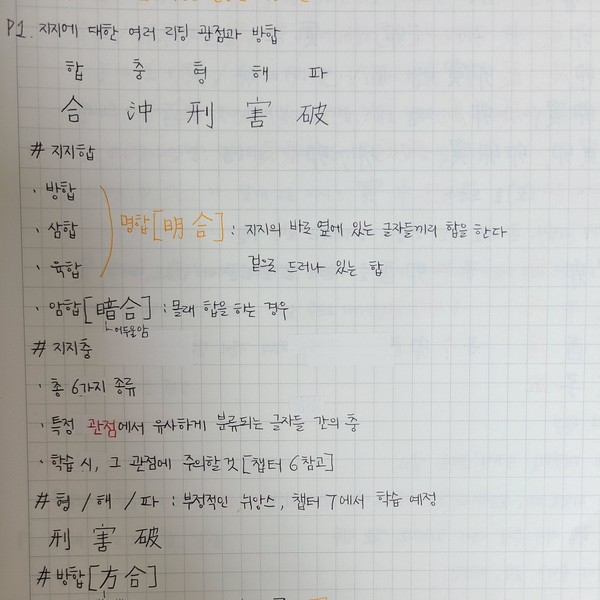 P1. 지지에 대한 여러 리딩 관점과 방합
합 충 형 해 파
合 沖 刑 害 破
# 지지합
· 방합
명합[明合] : 지지의 바로 옆에 있는 글자들끼리 합을 한다
· 삼합
· 육합
겉으로 드러나 있는 합
· 암합[暗合] : 몰래 합을 하는 경우
어두울 암
# 지지충
· 총 6가지 종류
· 특정 관점에서 유사하게 분류되는 글자들 간의 충
· 학습 시, 그 관점에 주의할 것 [챕터 6 참고]
# 형 / 해 / 파 : 부정적인 뉘앙스, 챕터 7에서 학습 예정
刑 害 破
# 방합[方合]